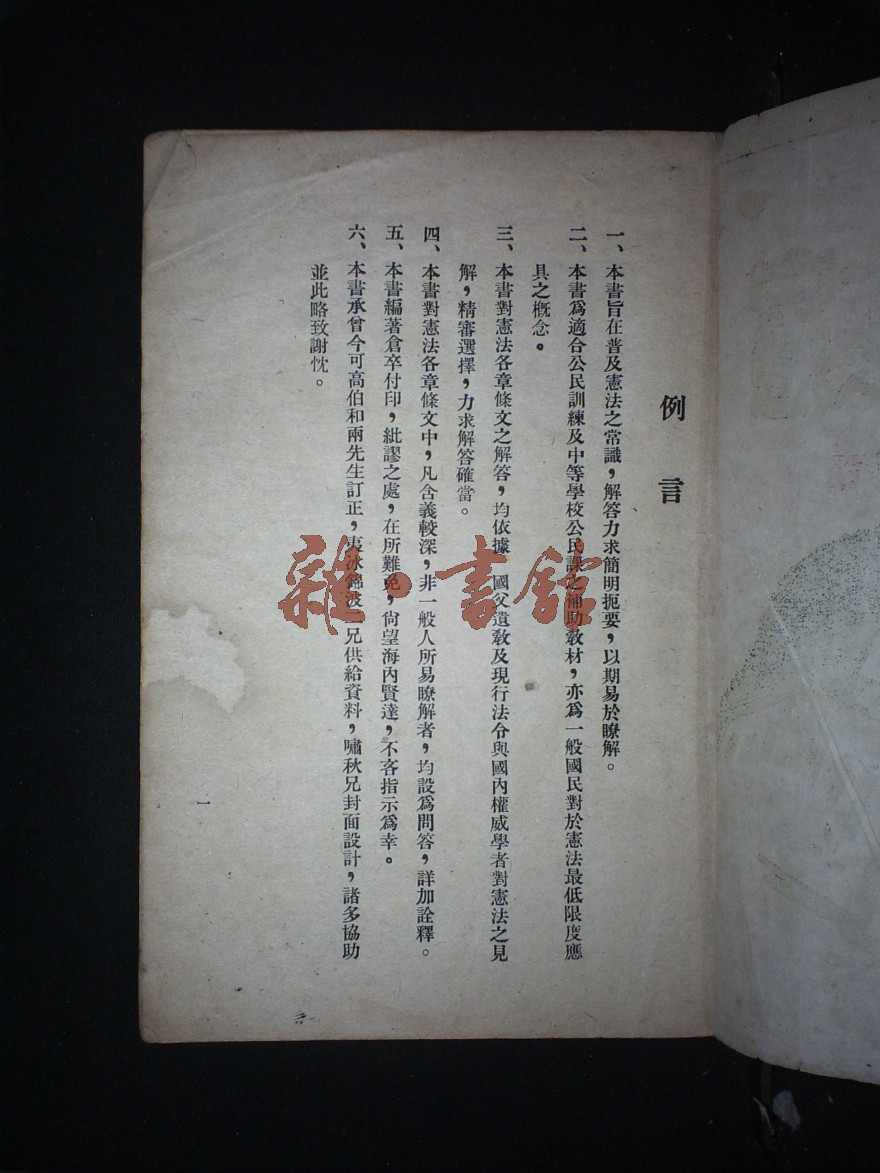 例言
一、本書旨在普及憲法之常識，解答力求簡明扼要，以期易於瞭解。
二、本書爲適合公民訓練及中等學校公民課之補助敎材，亦爲一般國民對於憲法最低限度應
具之槪念。
三、本書對憲法各章條文之解答，均依據　國父遺敎及現行法令與國內權威學者對憲法之見
解，精審選擇，力求解答確當。
四、本書對憲法各章條文中，凡含義較深，非一般人所易瞭解者，均設爲問答，詳加詮釋。
五、本書編著倉卒付印，紕謬之處，在所難免，尙望海內賢達，不吝指示爲幸。
六、本書承曾今可高伯和兩先生訂正，夷冰錦波二兄供給資料，嘯秋兄封面設計，諸多協助
並此略致謝忱。
一
雜·書館